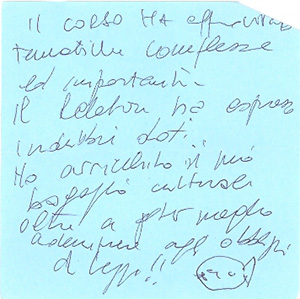 Il corso ha affrontato
tematiche complesse
ed importanti.
Il relatore ha espresso
indubbie doti.
Ho arricchito il mio
bagaglio culturale
oltre a poter meglio
adempiere agli obblighi
di legge!!